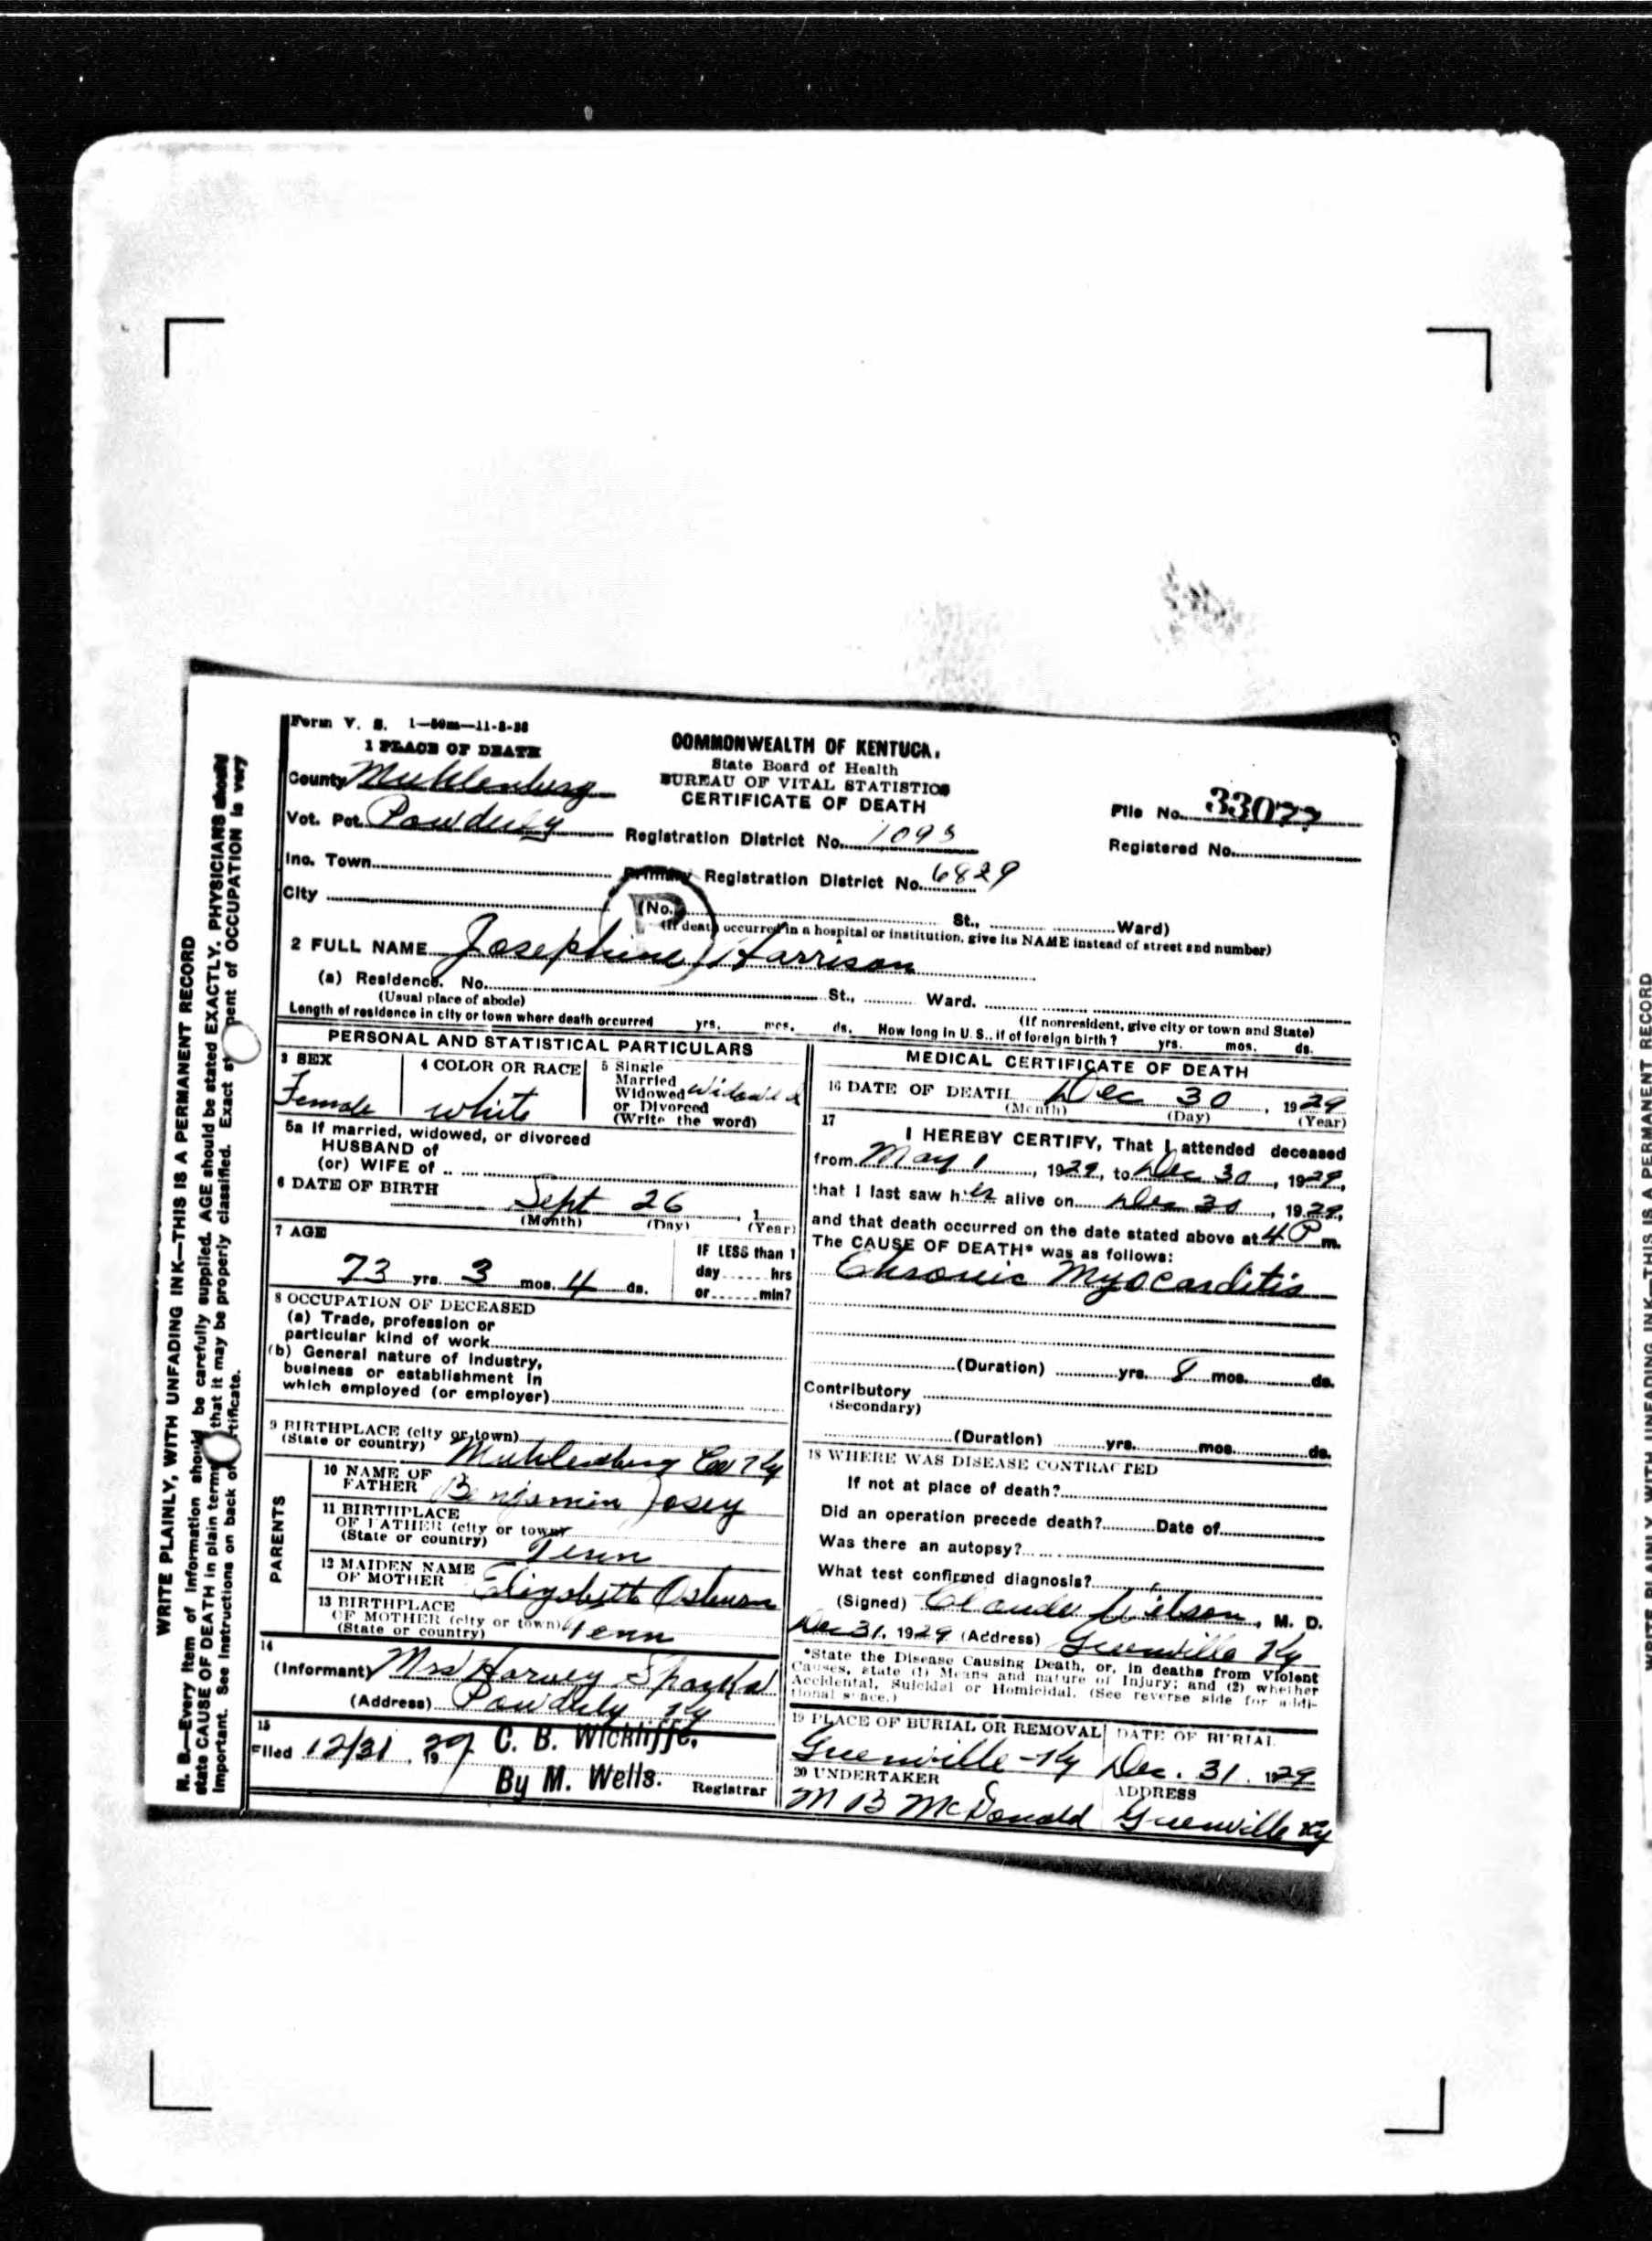 Form V. S. 1—50m—11-8-28
1 PLACE OF DEATH
COMMONWEALTH OF KENTUCK
State Board of Health
BUREAU OF VITAL STATISTICS
CERTIFICATE OF DEATH
County Muhlenburg
Vot. Pct. Powderly
Registration District No. 1095
File No. 33077
Registered No.
Inc. Town
Primary Registration District No. 6829
City
(No. St., Ward)
(If death occurred in a hospital or institution, give its NAME instead of street and number)
2 FULL NAME Josephine Harrison
(a) Residence. No. St., Ward.
(Usual place of abode) (If nonresident, give city or town and State)
Length of residence in city or town where death occurred yrs. mos. ds. How long in U. S., if of foreign birth? yrs. mos. ds.
PERSONAL AND STATISTICAL PARTICULARS
3 SEX
Female
4 COLOR OR RACE
white
5 Single
Married
Widowed
or Divorced
(Write the word)
Widowed
5a If married, widowed, or divorced
HUSBAND of
(or) WIFE of
6 DATE OF BIRTH
Sept 26, 1
(Month) (Day) (Year)
7 AGE
73 yrs. 3 mos. 4 ds.
IF LESS than 1
day hrs
or min?
8 OCCUPATION OF DECEASED
(a) Trade, profession or
particular kind of work
(b) General nature of industry,
business or establishment in
which employed (or employer)
9 BIRTHPLACE (city or town)
(State or country) Muhlenburg Co Ky
PARENTS
10 NAME OF
FATHER Benjamin Josey
11 BIRTHPLACE
OF FATHER (city or town)
(State or country) Tenn
12 MAIDEN NAME
OF MOTHER Elizabeth Osburn
13 BIRTHPLACE
OF MOTHER (city or town)
(State or country) Tenn
14
(Informant) Mrs Harvey Sparks
(Address) Powderly Ky
15
Filed 12/31, 1929 C. B. Wickliffe,
By M. Wells. Registrar
MEDICAL CERTIFICATE OF DEATH
16 DATE OF DEATH Dec 30, 1929
(Month) (Day) (Year)
17
I HEREBY CERTIFY, That I attended deceased
from May 1, 1929, to Dec 30, 1929,
that I last saw her alive on Dec 30, 1929,
and that death occurred on the date stated above at 4 P m.
The CAUSE OF DEATH* was as follows:
Chronic Myocarditis
(Duration) yrs. 8 mos. ds.
Contributory
(Secondary)
(Duration) yrs. mos. ds.
18 WHERE WAS DISEASE CONTRACTED
If not at place of death?
Did an operation precede death? Date of
Was there an autopsy?
What test confirmed diagnosis?
(Signed) Claude Wilson, M. D.
Dec 31, 1929 (Address) Greenville Ky
*State the Disease Causing Death, or, in deaths from Violent
Causes, state (1) Means and nature of Injury; and (2) whether
Accidental, Suicidal or Homicidal. (See reverse side for addi-
tional space.)
19 PLACE OF BURIAL OR REMOVAL
Greenville - Ky
DATE OF BURIAL
Dec. 31. 1929
20 UNDERTAKER
M B McDonald
ADDRESS
Greenville Ky
WRITE PLAINLY, WITH UNFADING INK—THIS IS A PERMANENT RECORD
N. B.—Every item of information should be carefully supplied. AGE should be stated EXACTLY. PHYSICIANS should
state CAUSE OF DEATH in plain terms that it may be properly classified. Exact st pent of OCCUPATION is very
important. See instructions on back of rtificate.
WRITE PLAINLY, WITH UNFADING INK—THIS IS A PERMANENT RECORD